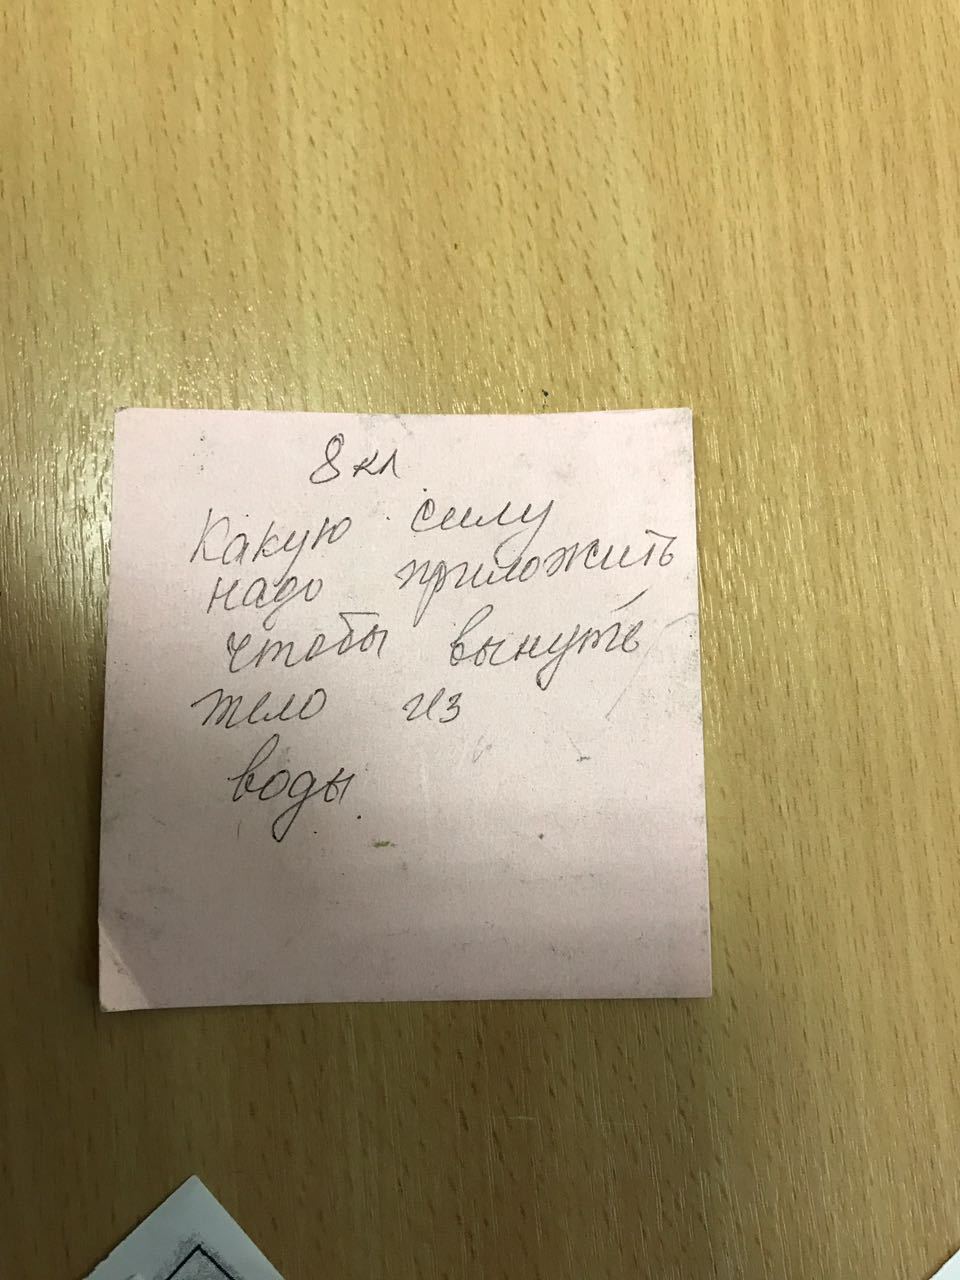 8 кл
Какую силу
надо приложить
чтобы вынуть
тело из
воды.